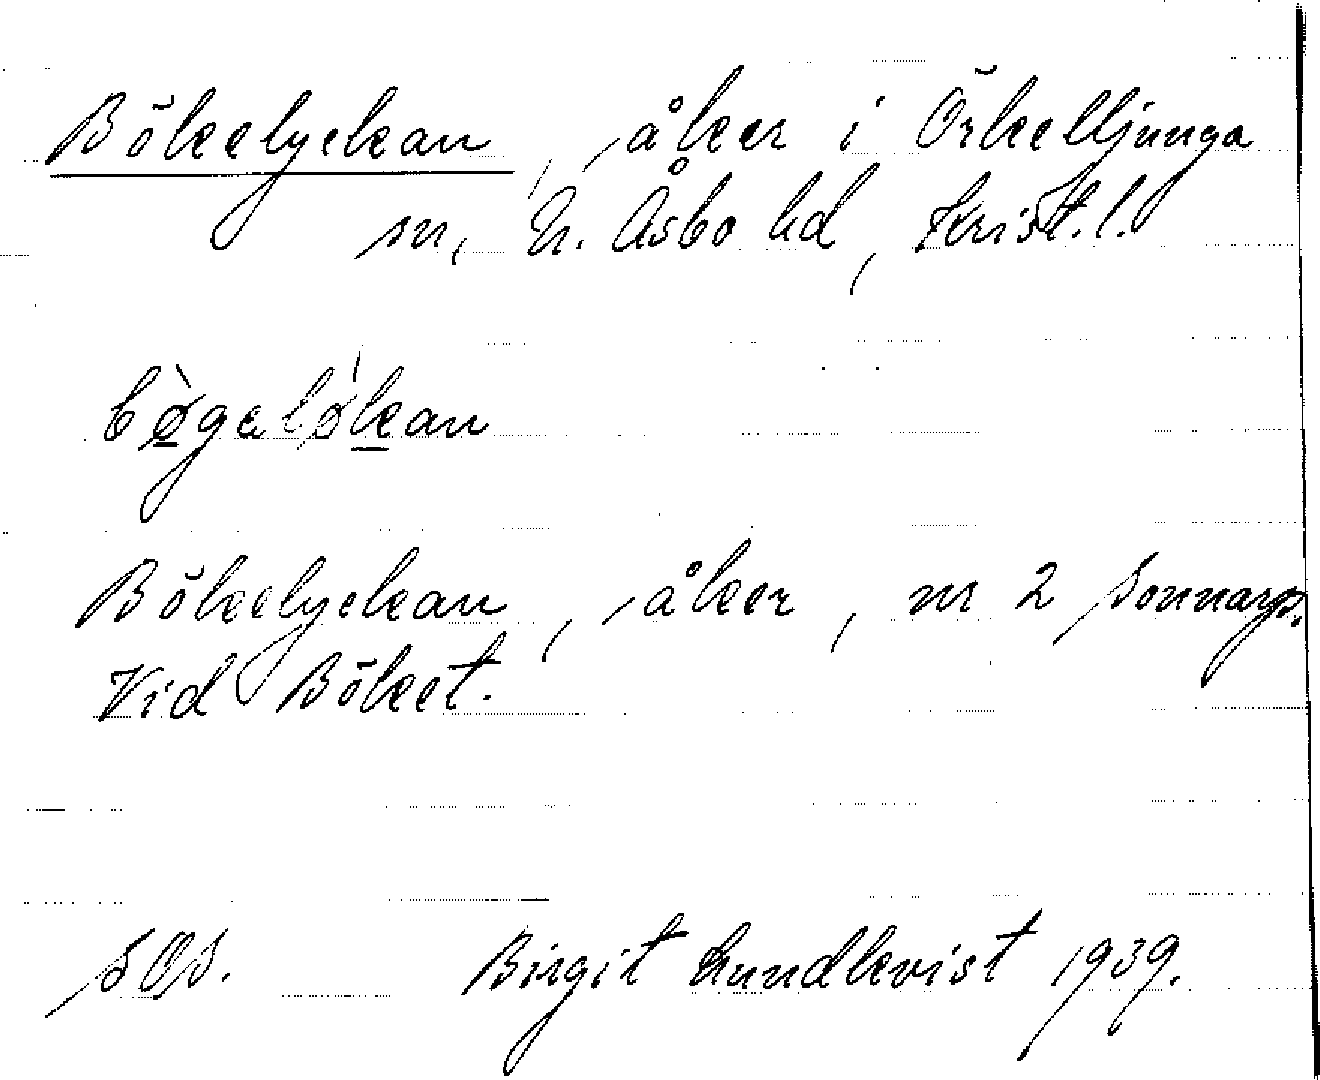 Bökelyckan, åker i Örkelljunga
sn, N. Åsbo hd, Krist. l.
bø̀gəlø̀kan
Bökelyckan, åker, nr 2 Sonnarp.
Vid Böket.
SOS. Birgit Lundkvist 1939.